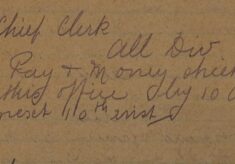 Chief Clerk
All Div
Pay & Money
this office by 10
10th inst